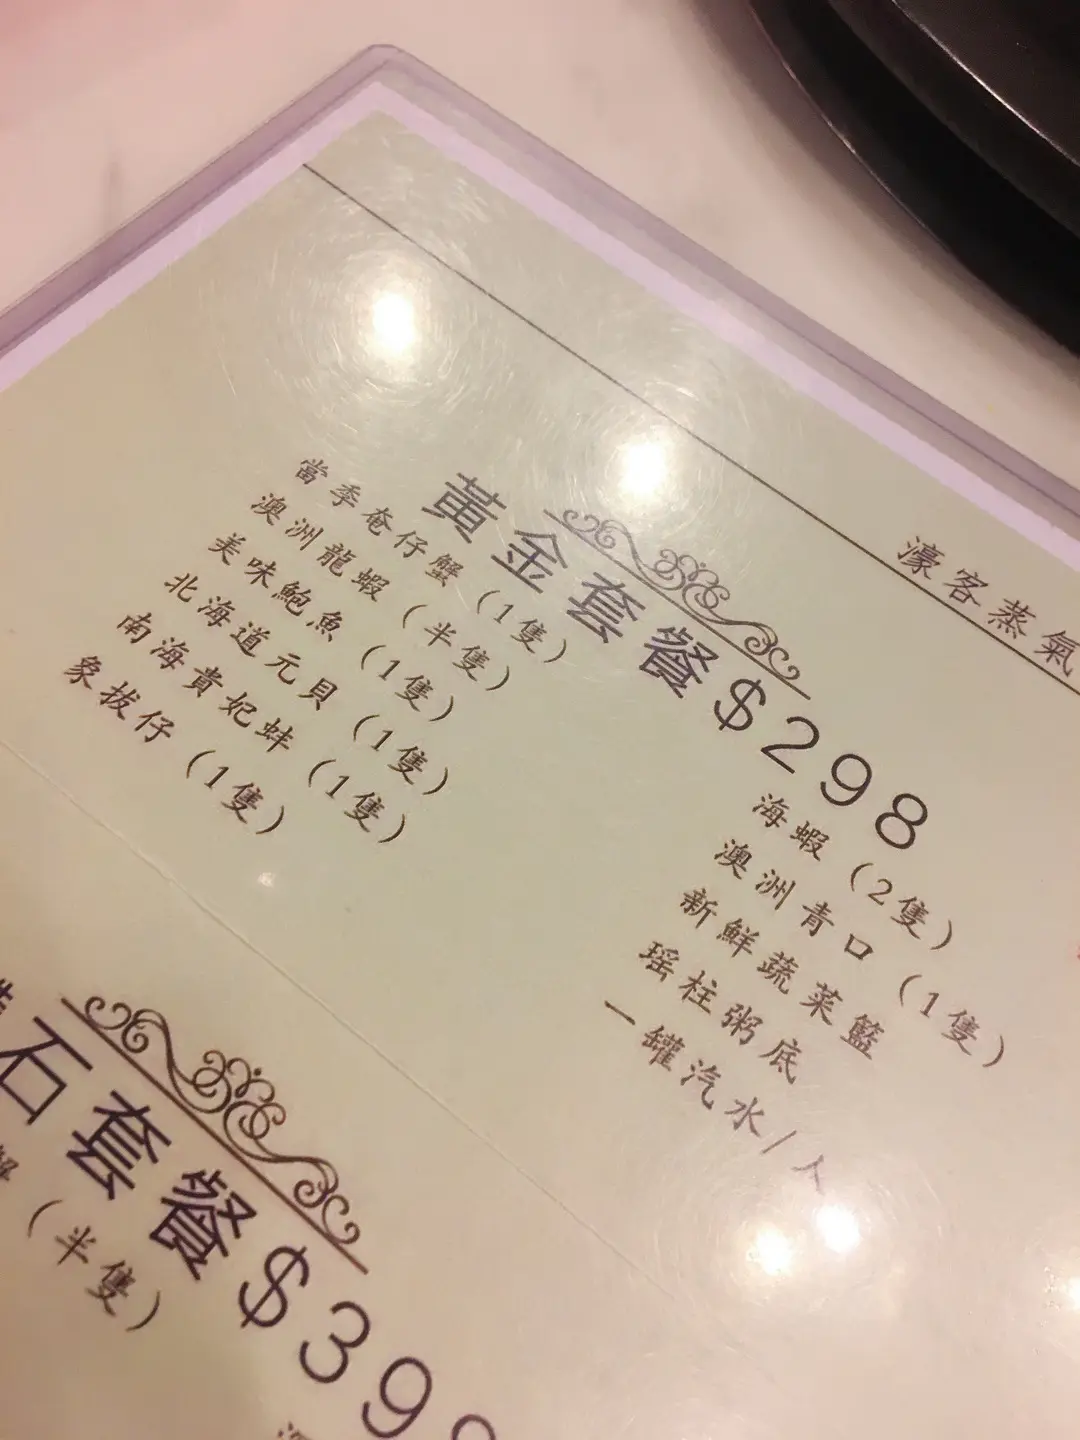 濠客蒸氣
黃金套餐$298
當季奄仔蟹（1隻）
澳洲龍蝦（半隻）
美味鮑魚（1隻）
北海道元貝（1隻）
南海貴妃蚌（1隻）
象拔仔（1隻）
海蝦（2隻）
澳洲青口（1隻）
新鮮蔬菜籃
瑶柱粥底
一罐汽水/人
石套餐$39
（半隻）